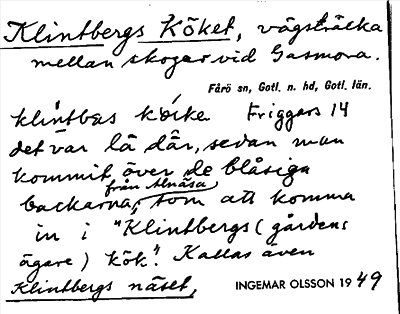 Klintbergs Köket, vägsträcka
mellan skogar vid Gasmora.
Fårö sn, Gotl. n. hd, Gotl. län.
klintbas köcke Friggars 14
det var lä där, sedan man
kommit över de blåsiga
från Alnäsa
backarna, som att komma
in i "Klintbergs (gårdens
ägare) kök". Kallas även
Klintbergs näset,
INGEMAR OLSSON 1949